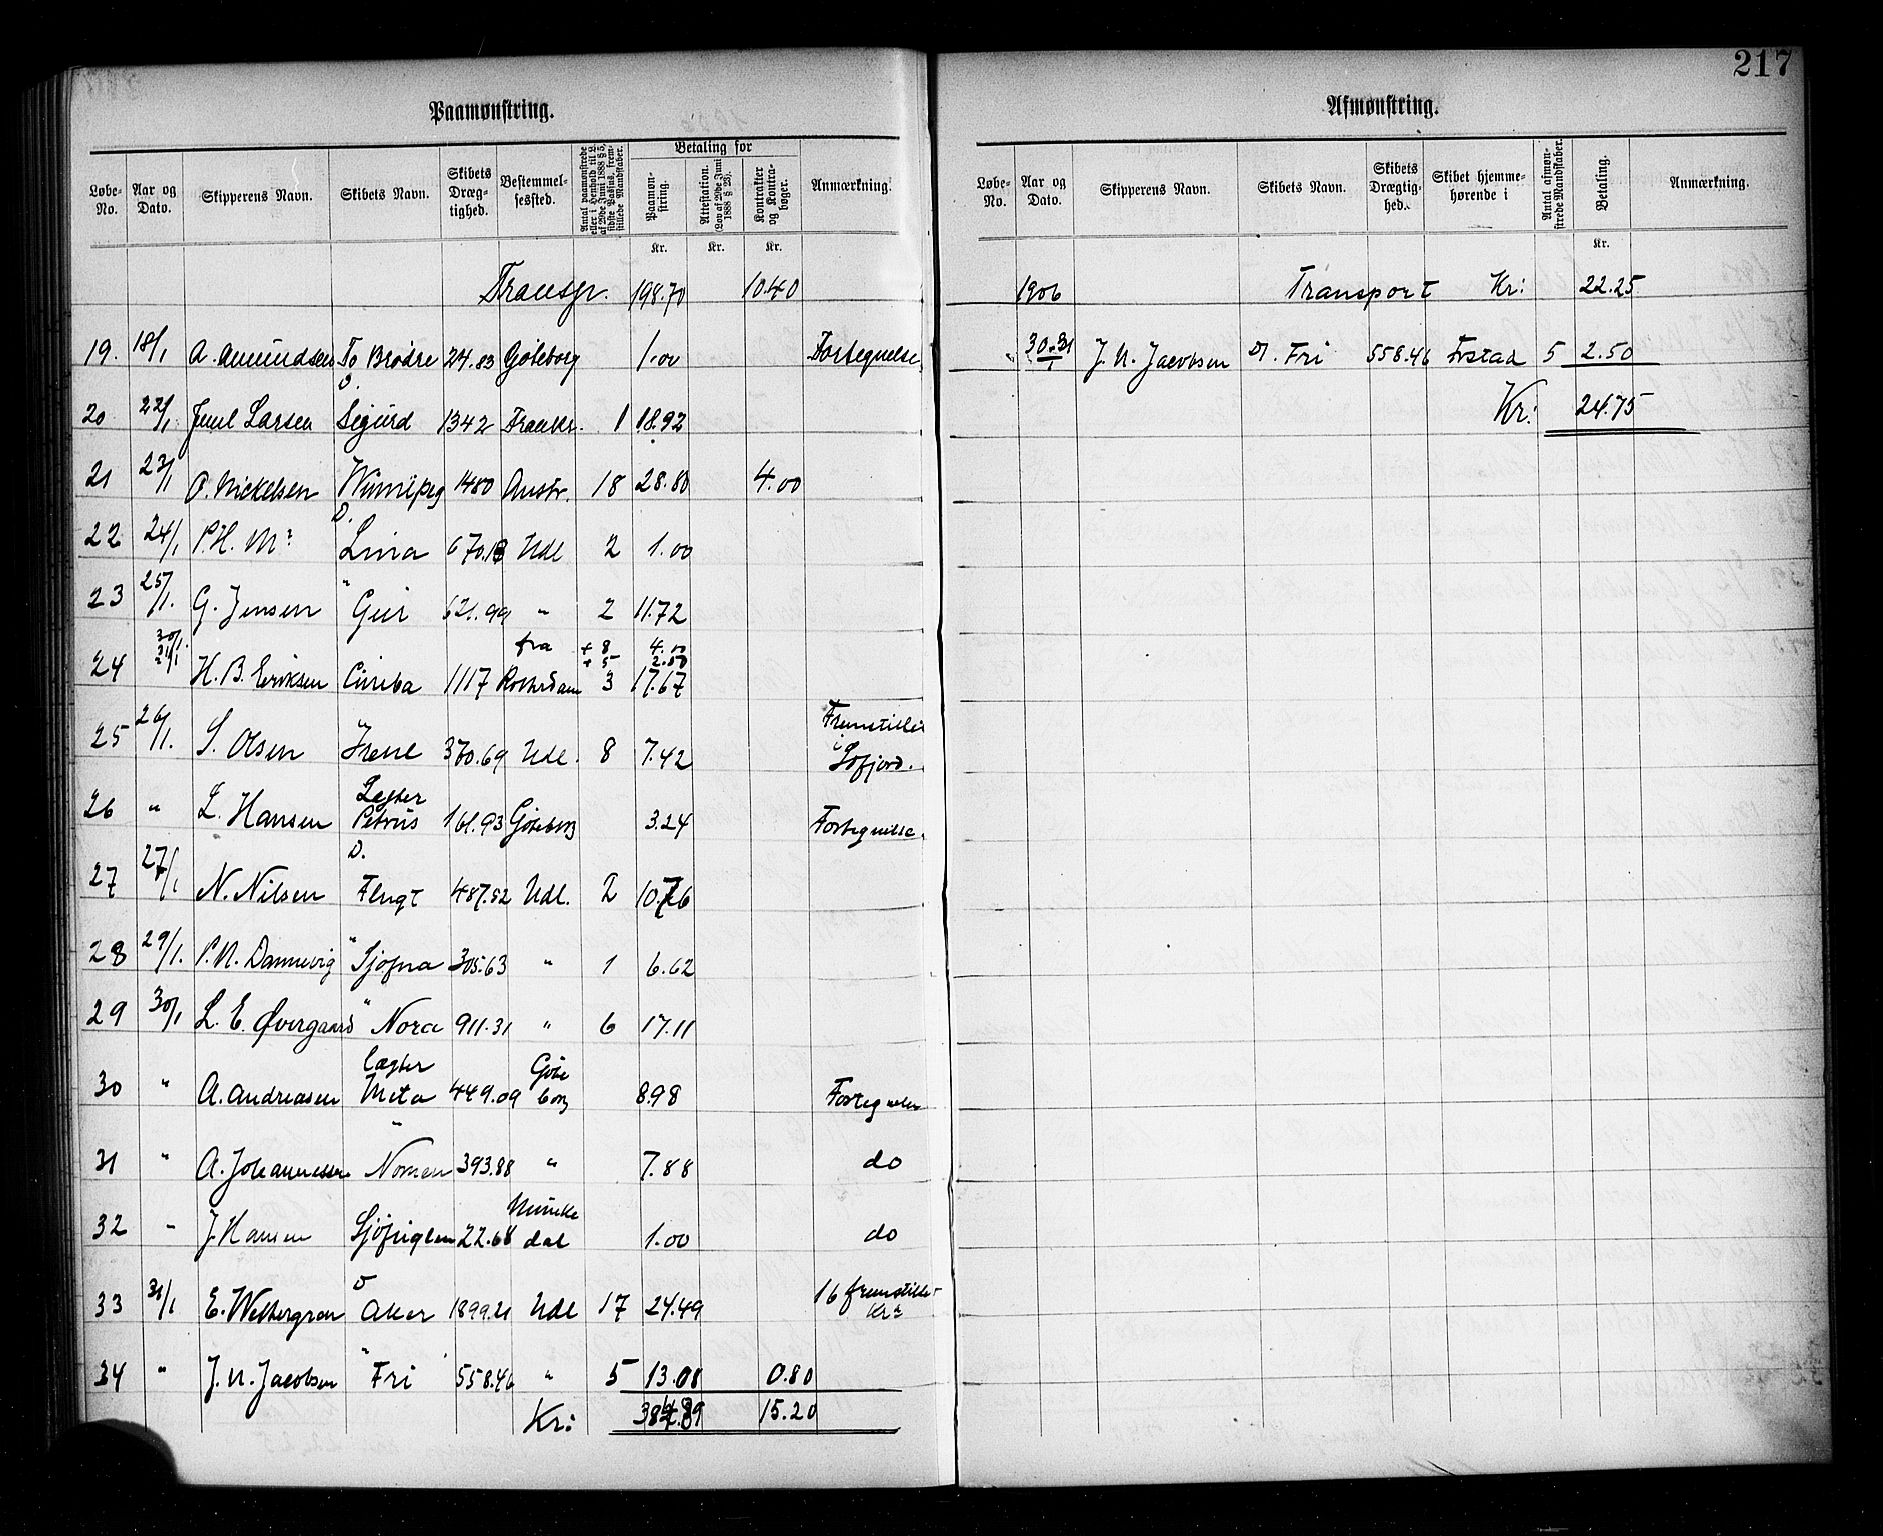 217
Paamønstring.
Løbe-No. Aar og Dato. Skipperens Navn. Skibets Navn. Skibets Dræg-tighed. Bestemmel-sessted. Antal paamønstrede eller i Henhold til L. af 29de Juni 1888 § 5, sidste Passus, frem-stillede Mandskaber. Betaling for Paamøn-string. Attestation. (Lov af 29de Juni 1888 § 23). Kontrakter og Kontra-bøger. Anmærkning.
Kr. Kr. Kr.
Transp. 198.70 10.40
19. 18/1 A. Amundsen To Brødre 24.83 Göteborg 1.00 Fortegnelse
20 22/1 Juul Larsen D. Sigurd 1342 Frankr. 1 18.92
21 23/1 P. Mickelsen Winnipeg 1480 Austr. 18 28.80 4.00
22 24/1 P.H. M? D. Lina 670.18 Udl 2 1.00
23 25/1. G. Jensen " Geir 621.99 " 2 11.72
24 30/1 21/1 H. B. Eriksen Cimba 1117 fra Rotterdam + 8 + 5 3 4.00 2.50 17.67
25 26/1. S. Olsen " Irene 370.69 Udl. 8 7.42 Fremstillet
26 " L. Hansen Lægter Petrus 161.93 Göteborg 3.24 Fortegnelse.
27 27/1 N. Nilsen D. Flugt 487.52 Udl. 2 10.76
28 29/1. P. N. Dannevig " Sjofna 305.63 " 1 6.62
29 30/1 L. E. Øvergaard " Nora 911.31 " 6 17.11
30 " A. Andreasen Lægter Meta 449.09 Göteborg 8.98 Fortegnelse
31 " A. Johannessen " Nornen 393.88 " 7.88 do
32 " J. Hansen Sjøfuglen 22.68 Munkedal 1.00 do
33 31/1 E. Wettergren D Aker 1899.21 Udl 17 24.49 16 fremstillet Kr?
34 " J. N. Jacobsen " Fri 558.46 " 5 13.08 0.80
Kr: 15.20
Afmønstring.
Løbe-No. Aar og Dato. Skipperens Navn. Skibets Navn. Skibets Drægtig-hed. Skibet hjemme-hørende i Antal afmøn-strede Mandskaber. Betaling. Anmærkning.
Kr.
1906 Transport Kr: 22.25
30+31/1 J. N. Jacobsen D. Fri 558.46 Frstad 5 2.50
Kr: 24.75